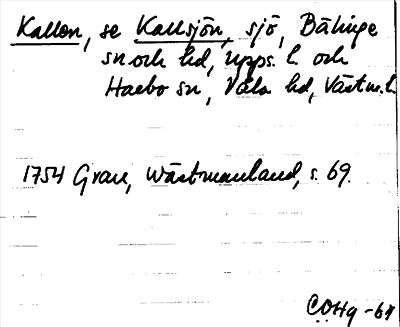 Kallen, se Kallsjön, sjö, Bälinge
sn och hd, Upps. l. och
Harbo sn, Våla hd, Västm. l.
1754 Grau, Wästmanland, s. 69.
COHg -64